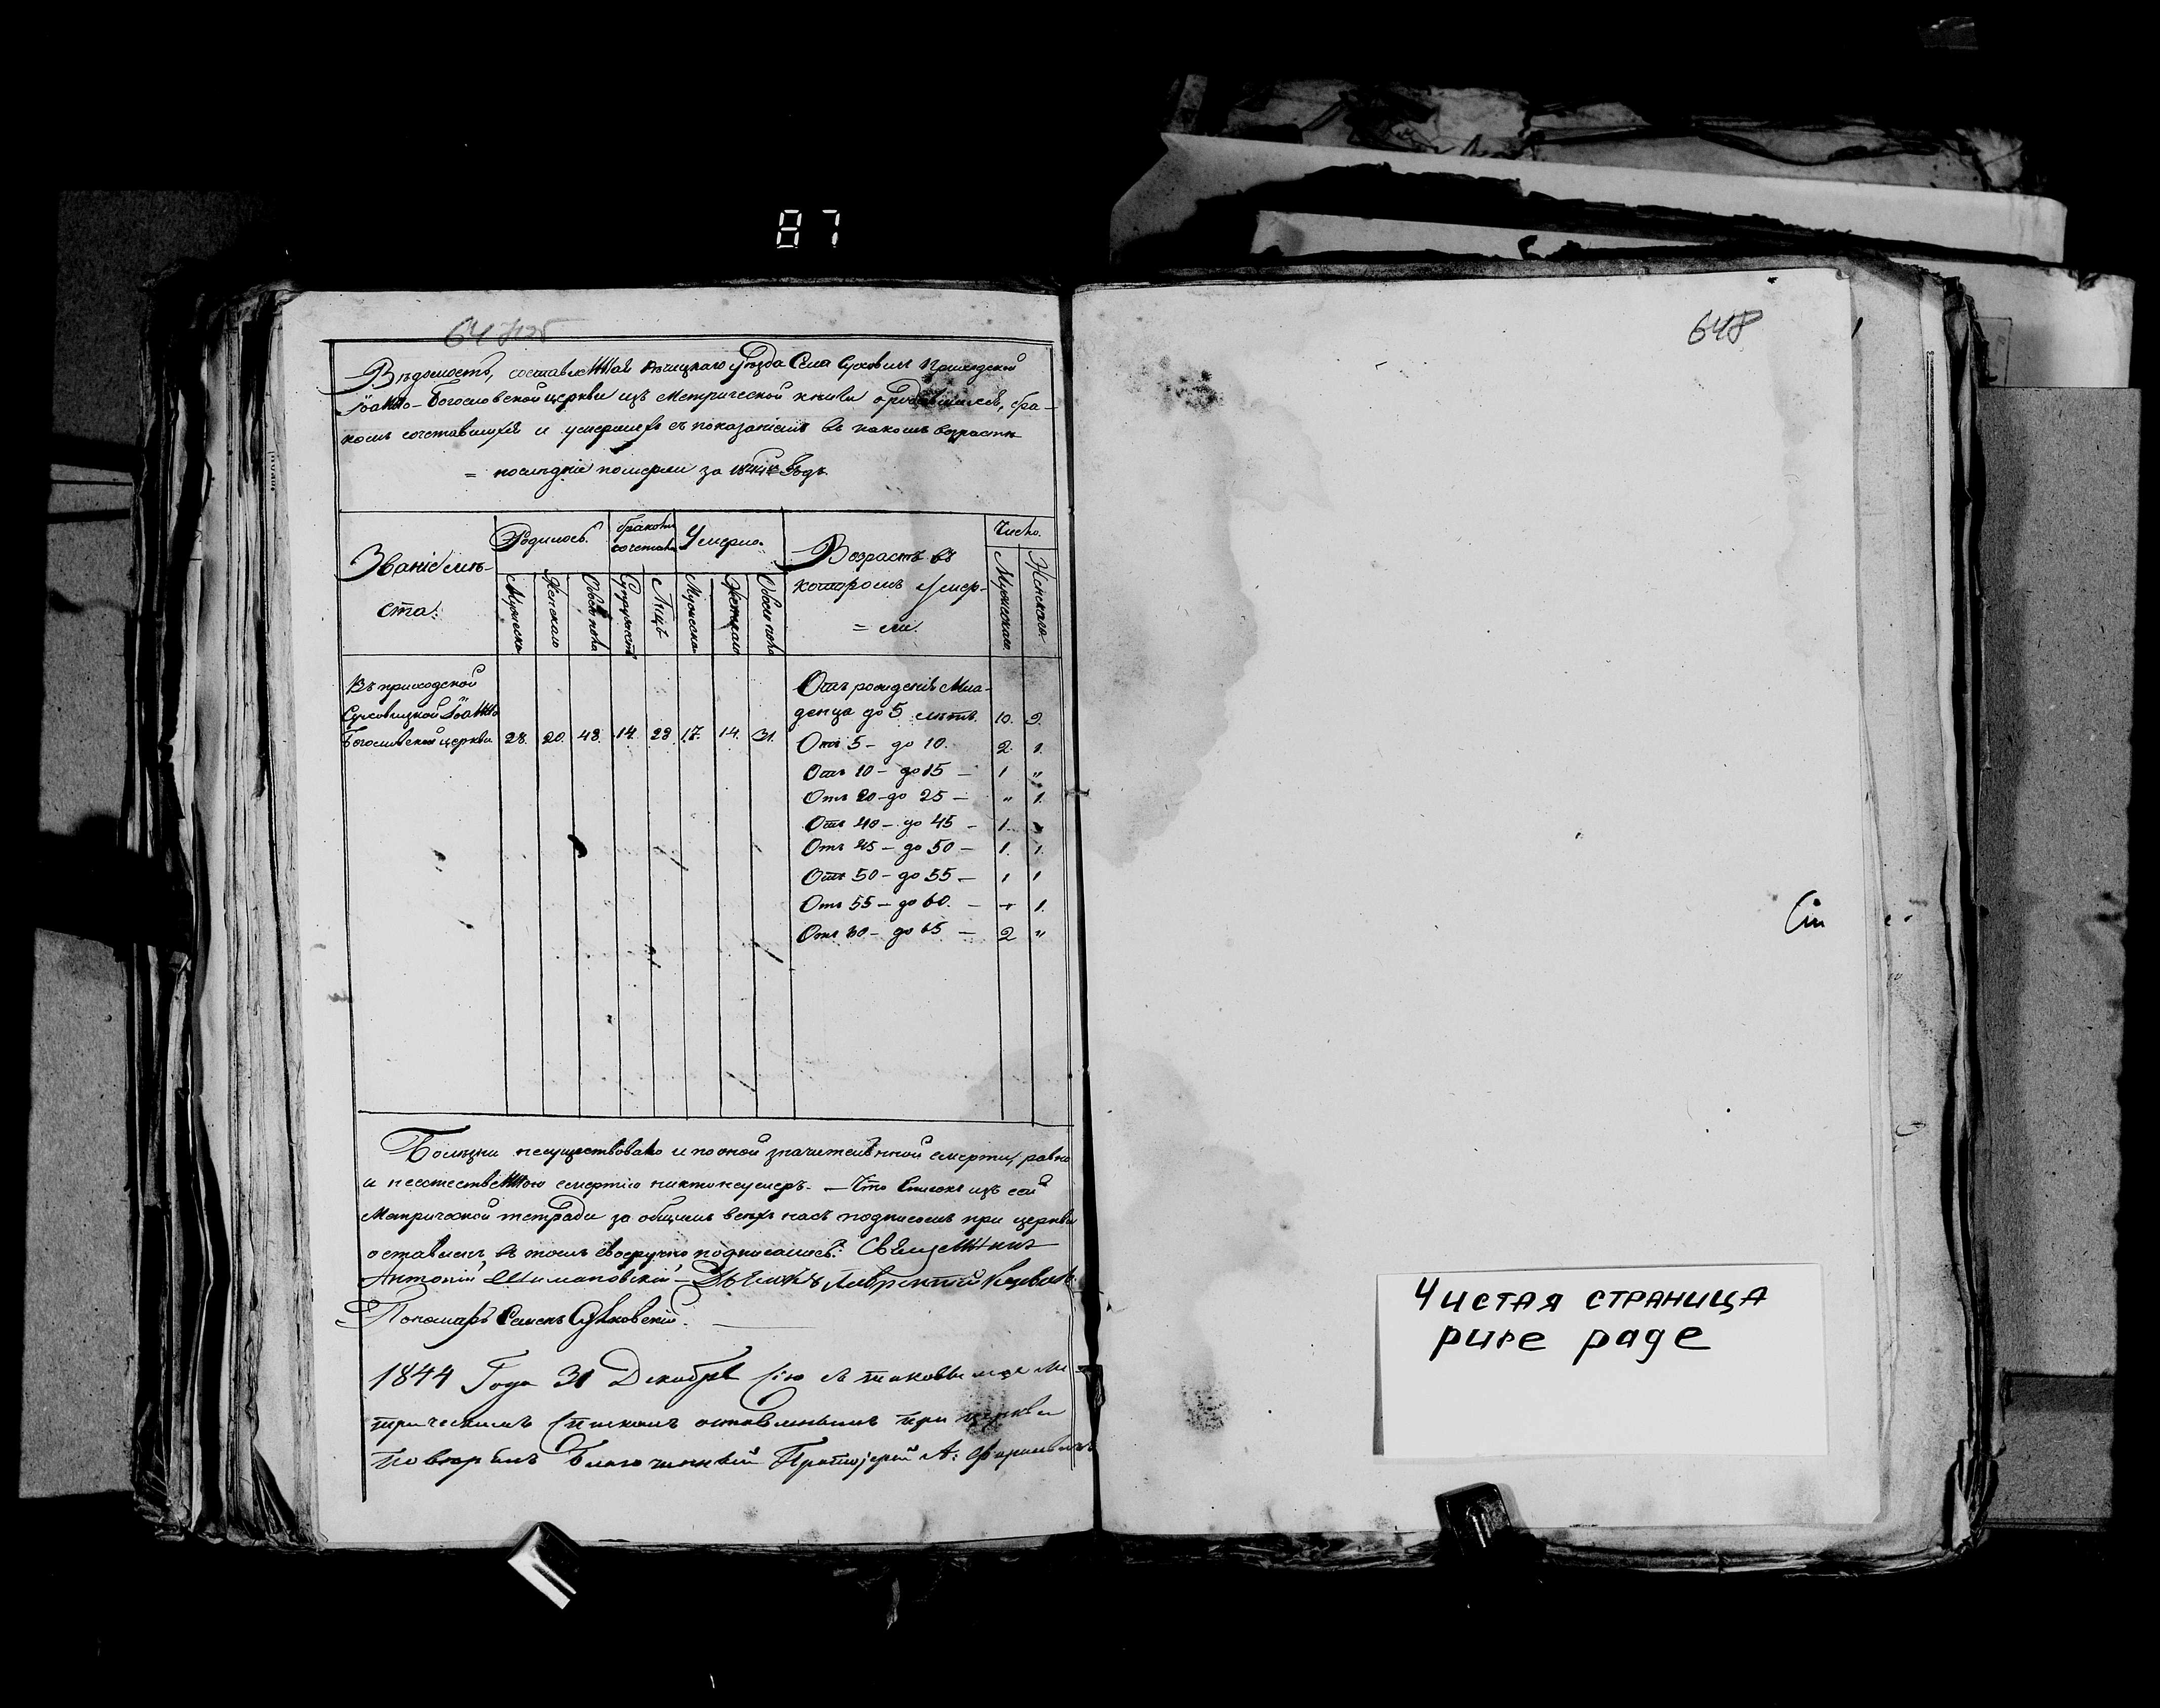 87
647 об
648
Вѣдомость, составленная Рѣчицкаго уѣзда Села Суховичъ Приходской
Іоанно-Богословской церкви изъ Метрической книги о родившихся, бра-
комъ сочетавшихся и умершихъ съ показаніемъ въ какомъ возрастѣ
= послѣдніе померли за 1844й Годъ
Званіе мѣ-
ста.
Родилось.
бракомъ
сочетано
Умерло.
Возрастъ въ
которомъ умер-
= ли.
Число.
Мужеска Женскаго Обоего пола Супружествъ Лицъ Мужеска Женскаго Обоего пола Мужескаго. Женскаго.
Въ приходской
Суховицкой Іоанно
Богословской церкви 28. 20. 48. 14. 28. 17. 14. 31.
Отъ рожденія Мла-
денца до 5 лѣтъ. 10. 9.
Отъ 5 - до 10. 2. 1.
Отъ 10 - до 15 - 1 "
Отъ 20 - до 25 - " 1.
Отъ 40 - до 45 - 1. "
Отъ 45 - до 50 - 1. 1.
Отъ 50 - до 55 - 1 1
Отъ 55 - до 60. - 1.
Отъ 60 - до 65 - 2 "
Болѣзни не существовало и по оной значительной смерти, равно
и неестественною смертію никто не умеръ. — Что Списокъ изъ сей
Метрической тетради за общимъ всѣхъ насъ подписомъ при церкви
оставленъ, въ томъ своеручно подписались: Священникъ
Антоній Шимановскій — Дьячокъ Лаврентій
Пономарь Семенъ
1844 Года 31 Декабря Сію съ таковымъ же ме-
трическимъ Спискомъ оставленымъ при церкви
повѣрялъ Благочинный Протоіерей А:
Чистая страница
pure page